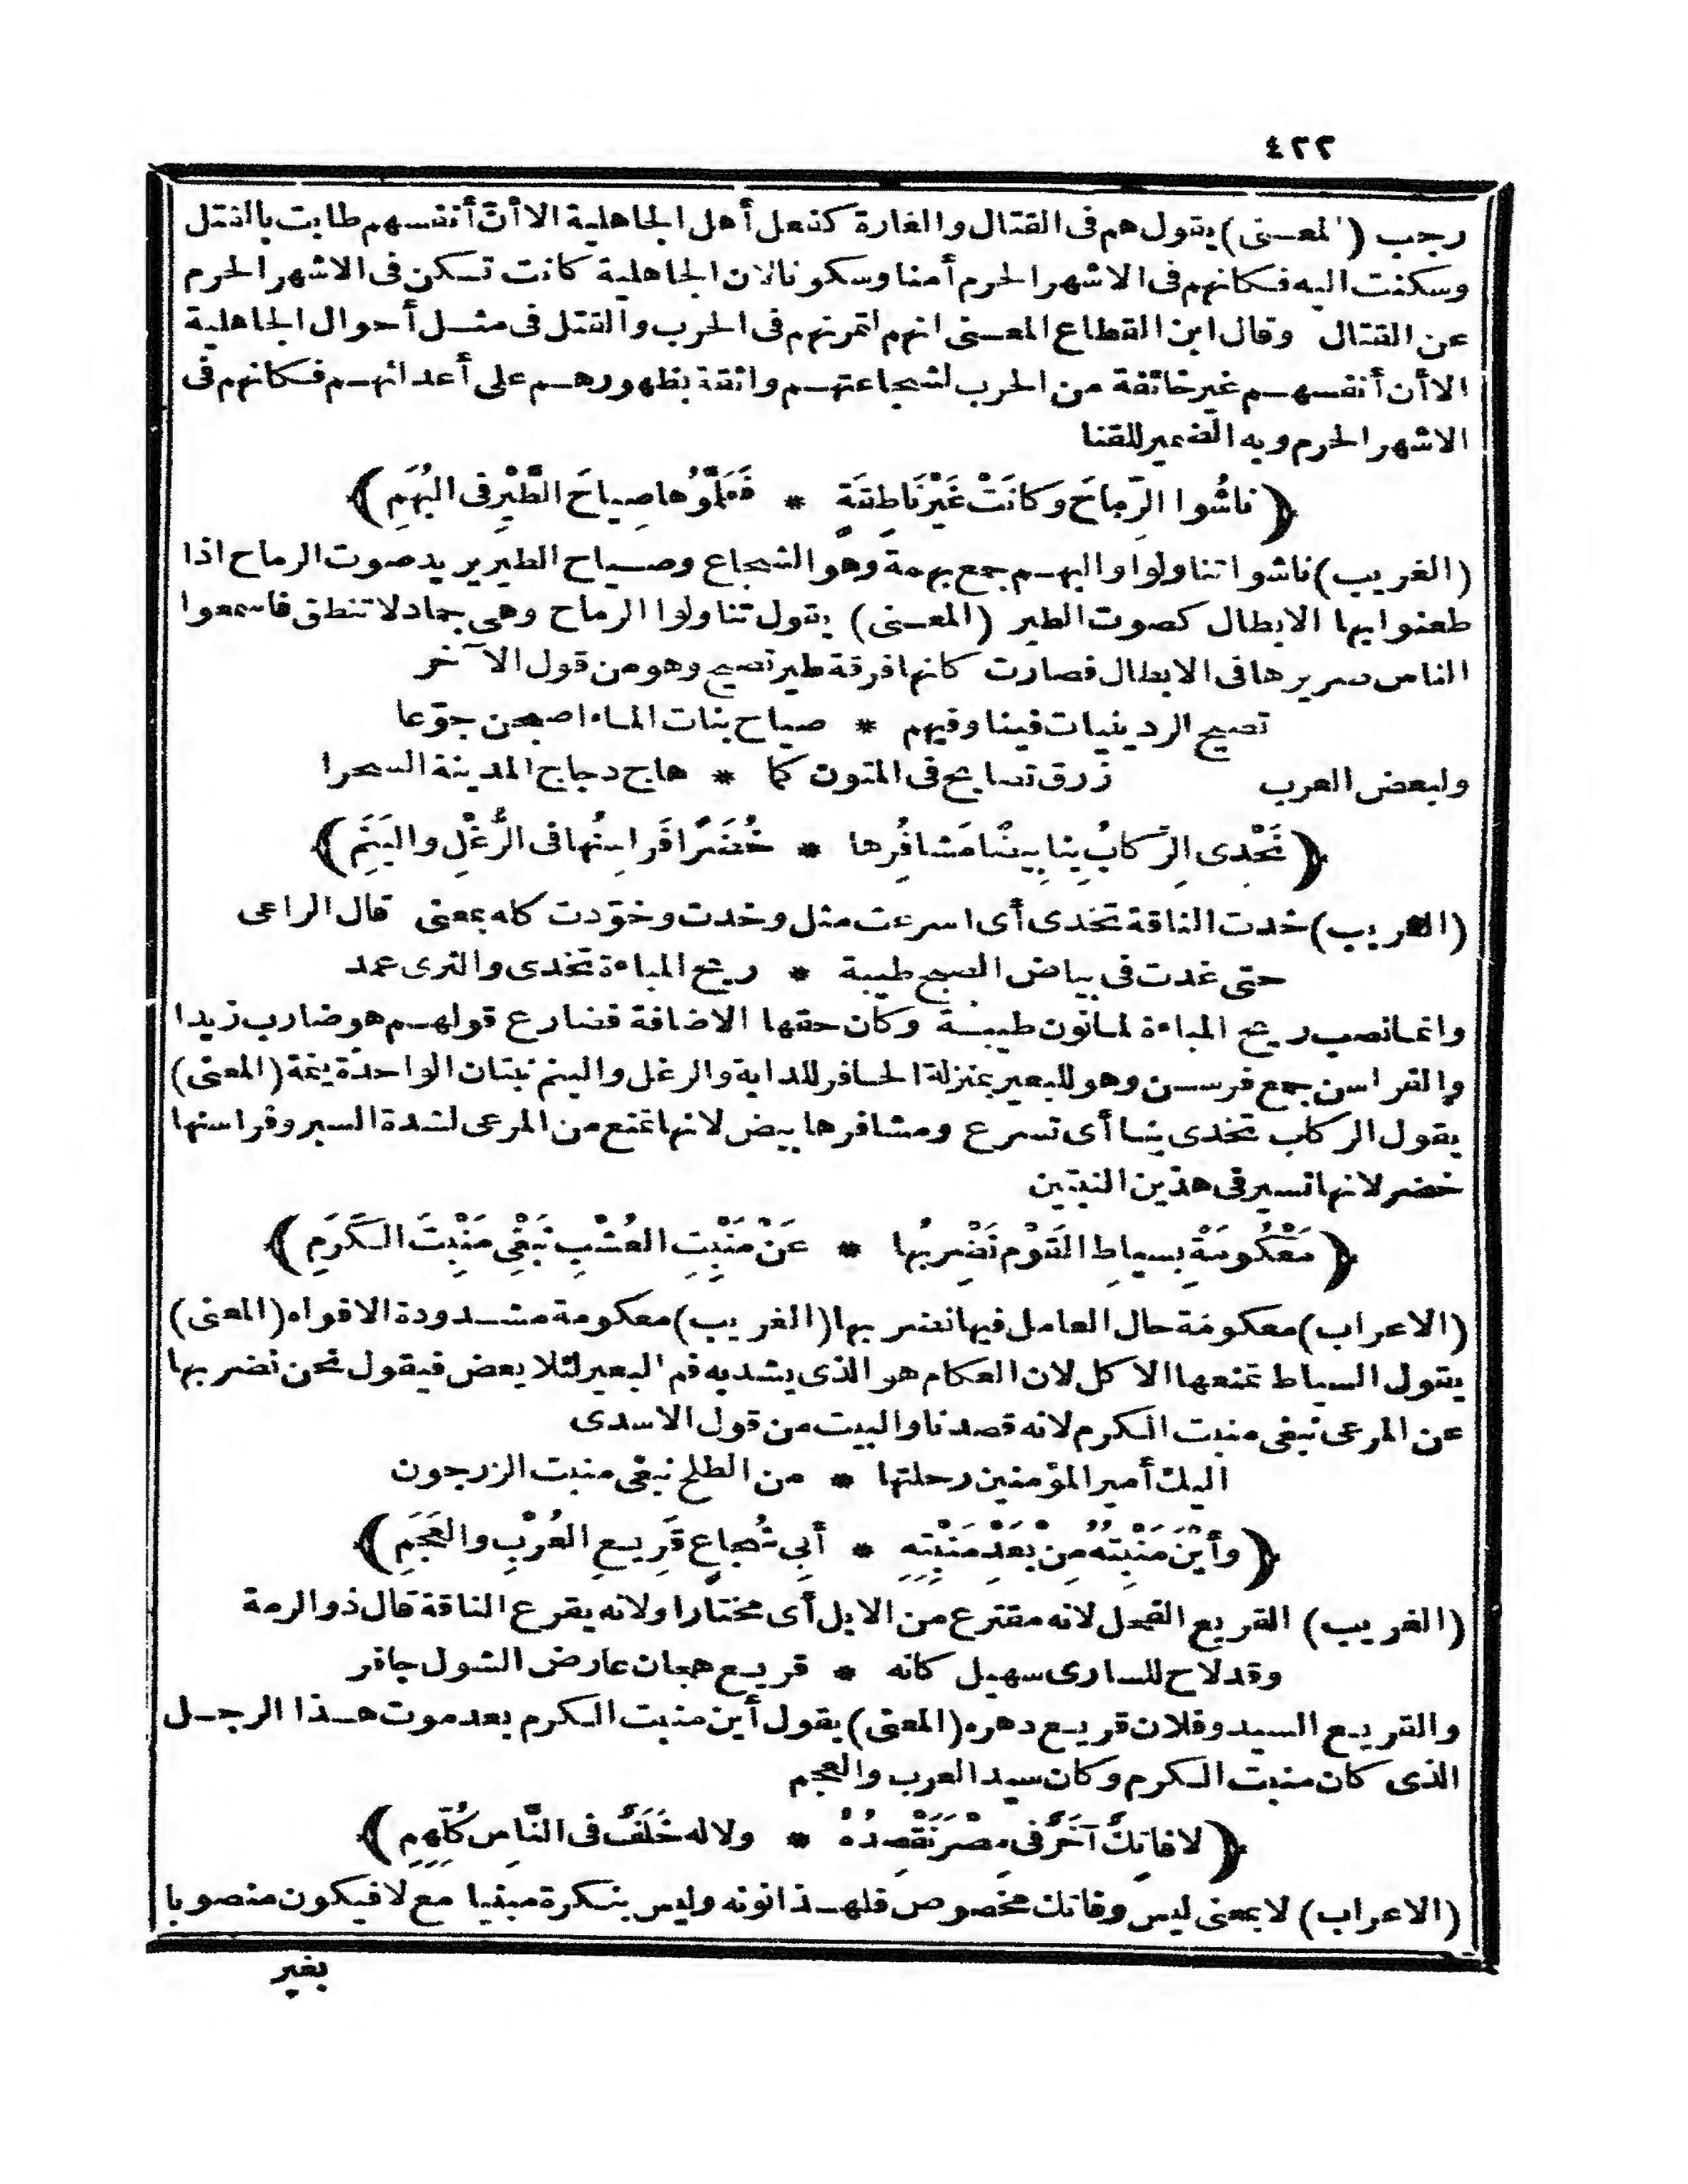 ٤٢٢
رجب (المعنى) يقول هم فى القتال والغارة كفعل أهل الجاهلية الا أنّ أنفسهم طابت بالقتل
وسكنت اليه فكانهم فى الاشهر الحرم أمنا وسكونا لان الجاهلية كانت تسكن فى الاشهر الحرم
عن القتال وقال ابن القطاع المعنى انهم لتمرنهم فى الحرب والقتل فى مثل أحوال الجاهلية
الا أن أنفسهم غير خائفة من الحرب لشجاعتهم واثقة بظهورهم على أعدائهم فكانهم فى
الاشهر الحرم وبه الضمير للقنا
﴿ناشُوا الرِّماحَ وكانَتْ غَيْرَ نَاطِقَةٍ * فَعَلَّمُوها صِياحَ الطَّيْرِ فى البُهَمِ﴾
(الغريب) ناشوا تناولوا والبهم جمع بهمة وهو الشجاع وصياح الطير يريد صوت الرماح اذا
طعنوا بها الابطال كصوت الطير (المعنى) يقول تناولوا الرماح وهى جماد لا تنطق فاسمعوا
الناس صريرها فى الابطال فصارت كانها فرقة طير تصيح وهو من قول الآخر
تصيح الردينيات فينا وفيهم * صياح بنات الماء اصبحن جوّعا
ولبعض العرب زرق تصايح فى المتون كما * هاج دجاج المدينة السحرا
﴿تَخْدِى الرِّكابُ بِنا بِيضًا مَشافِرُها * خُضْرًا فَراسِنُها فى الرُّغْلِ واليَنَمِ﴾
(الغريب) خدت الناقة تخدى أى اسرعت مثل وخدت وخوّدت كله بمعنى قال الراعى
حتى غدت فى بياض الصبح طيبة * ريح المباءة تخدى والثرى عمد
وانما نصب ريح المباءة لما نون طيبة وكان حقها الاضافة فضارع قولهم هو ضارب زيدا
والفراسن جمع فرسن وهو للبعير بمنزلة الحافر للدابة والرغل والينم نبتان الواحدة ينمة (المعنى)
يقول الركاب تخدى بنا أى تسرع ومشافرها بيض لانها تمنع من المرعى لشدة السير وفراسنها
خضر لانها تسير فى هذين النبتين
﴿مَعْكُومَةً بِسِياطِ القَوْمِ نَضْرِبُها * عَنْ مَنْبِتِ العُشْبِ نَبْغِى مَنْبِتَ الكَرَمِ﴾
(الاعراب) معكومة حال العامل فيها نضربها (الغريب) معكومة مشدودة الافواه (المعنى)
يقول السياط تمنعها الاكل لان العكام هو الذى يشد به فم البعير لئلا يعض فيقول نحن نضربها
عن المرعى نبغى منبت الكرم لانه قصدنا والبيت من قول الاسدى
اليك أمير المؤمنين رحلتها * من الطلح نبغى منبت الزرجون
﴿وأيْنَ مَنْبِتُهُ مِنْ بَعْدِ مَنْبِتِهِ * أبِى شُجاعٍ قَرِيعِ العُرْبِ والعَجَمِ﴾
(الغريب) القريع الفحل لانه مقترع من الابل أى مختار او لانه يقرع الناقة قال ذو الرمة
وقد لاح للسارى سهيل كانه * قريع هجان عارض الشول جافر
والقريع السيد وفلان قريع دهره (المعنى) يقول أين منبت الكرم بعد موت هذا الرجل
الذى كان منبت الكرم وكان سيد العرب والعجم
﴿لا فاتِكٌ آخَرٌ فى مِصْرَ نَقْصِدُهُ * ولا له خَلَفٌ فى النَّاسِ كُلِّهِمِ﴾
(الاعراب) لا بمعنى ليس وفاتك مخصوص فلهذا نونه وليس بنكرة مبنيا مع لا فيكون منصوبا
بغير